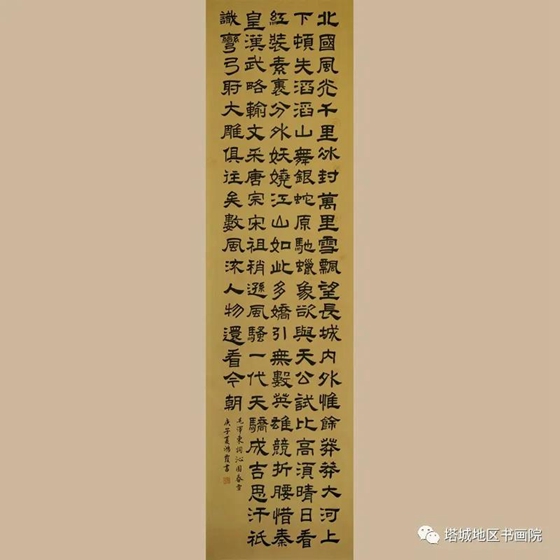 北國風光千里冰封萬里雪飄望長城內外惟餘莽莽大河上
下頓失滔滔山舞銀蛇原馳蠟象欲與天公試比高須晴日看
紅裝素裹分外妖嬈江山如此多嬌引無數英雄競折腰惜秦
皇漢武略輸文采唐宗宋祖稍遜風騷一代天驕成吉思汗祇
識彎弓射大雕俱往矣數風流人物還看今朝
毛澤東詞沁園春雪
庚子夏鴻霞書
塔城地区书画院